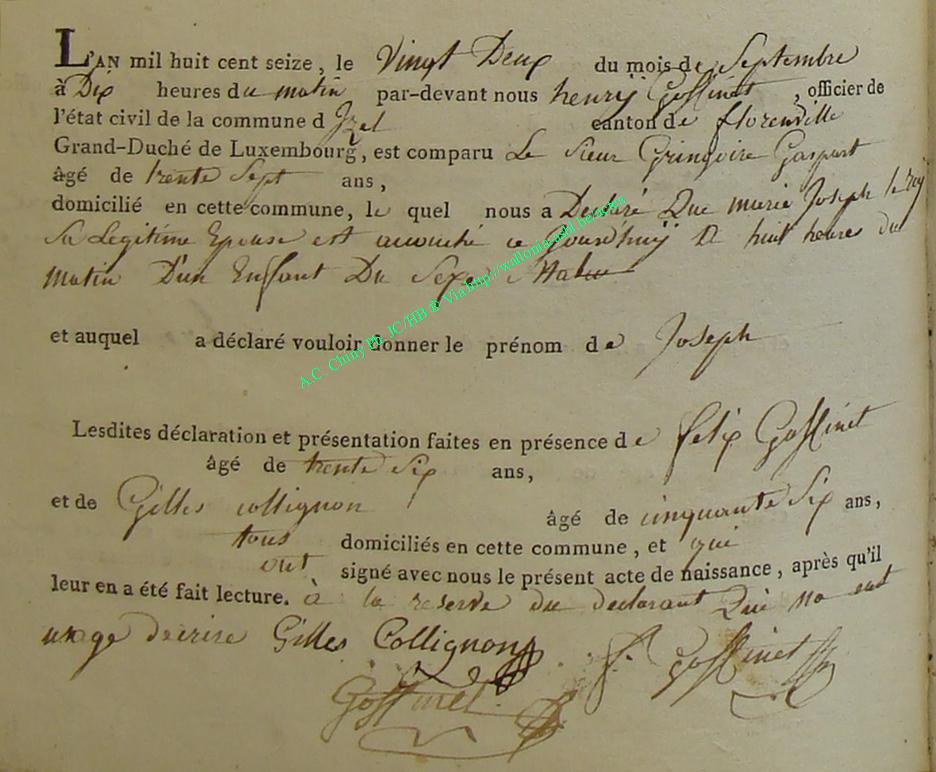 L'AN mil huit cent seize, le Vingt Deux du mois de Septembre
à Dix heures du matin par-devant nous henrÿ Gossinet, officier de
l'état civil de la commune d Izel canton de florenville
Grand-Duché de Luxembourg, est comparu Le Sieur Gringoire Gaspart
âgé de trente Sept ans,
domicilié en cette commune, le quel nous a Declaré Que marie Joseph le roÿ
Sa Legitime Epouse est accouché ce Jourdhuÿ a huit heures du
matin D'un Enfant Du Sexe
et auquel a déclaré vouloir donner le prénom de Joseph
Lesdites déclaration et présentation faites en présence de felix Gossinet
âgé de trente six ans,
et de Gilles collignon âgé de cinquante Six ans,
tous domiciliés en cette commune, et qui
ont signé avec nous le présent acte de naissance, après qu'il
leur en a été fait lecture. à la reserve du declarant Qui na eut
usage decrire Gilles Collignon f. Gossinet
Gossinet
A.C. Chiny Ph. JC/HB @ Via http://wallonia-asbl.be